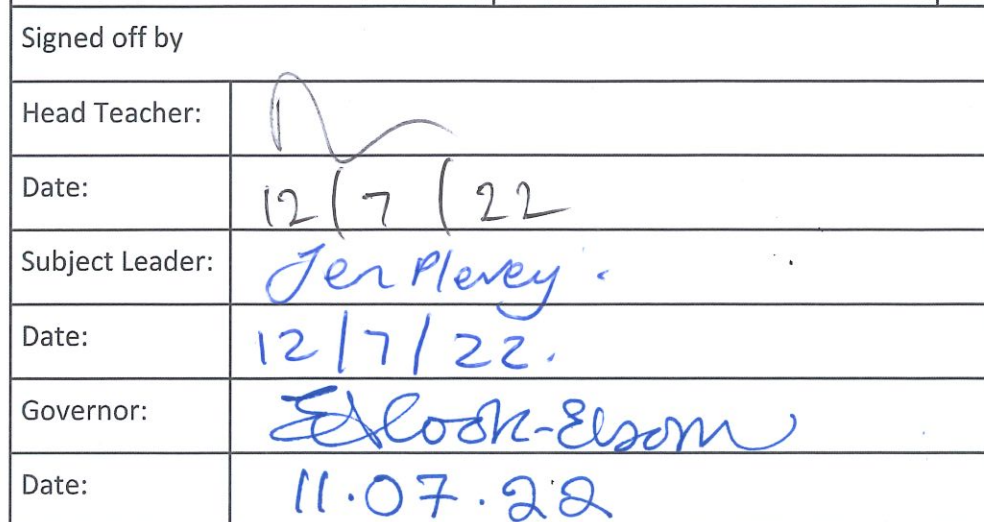 Signed off by
Head Teacher:
Date: 12/7/22
Subject Leader: Jen Plevey.
Date: 12/7/22.
Governor: Cook-Elsom
Date: 11.07.22